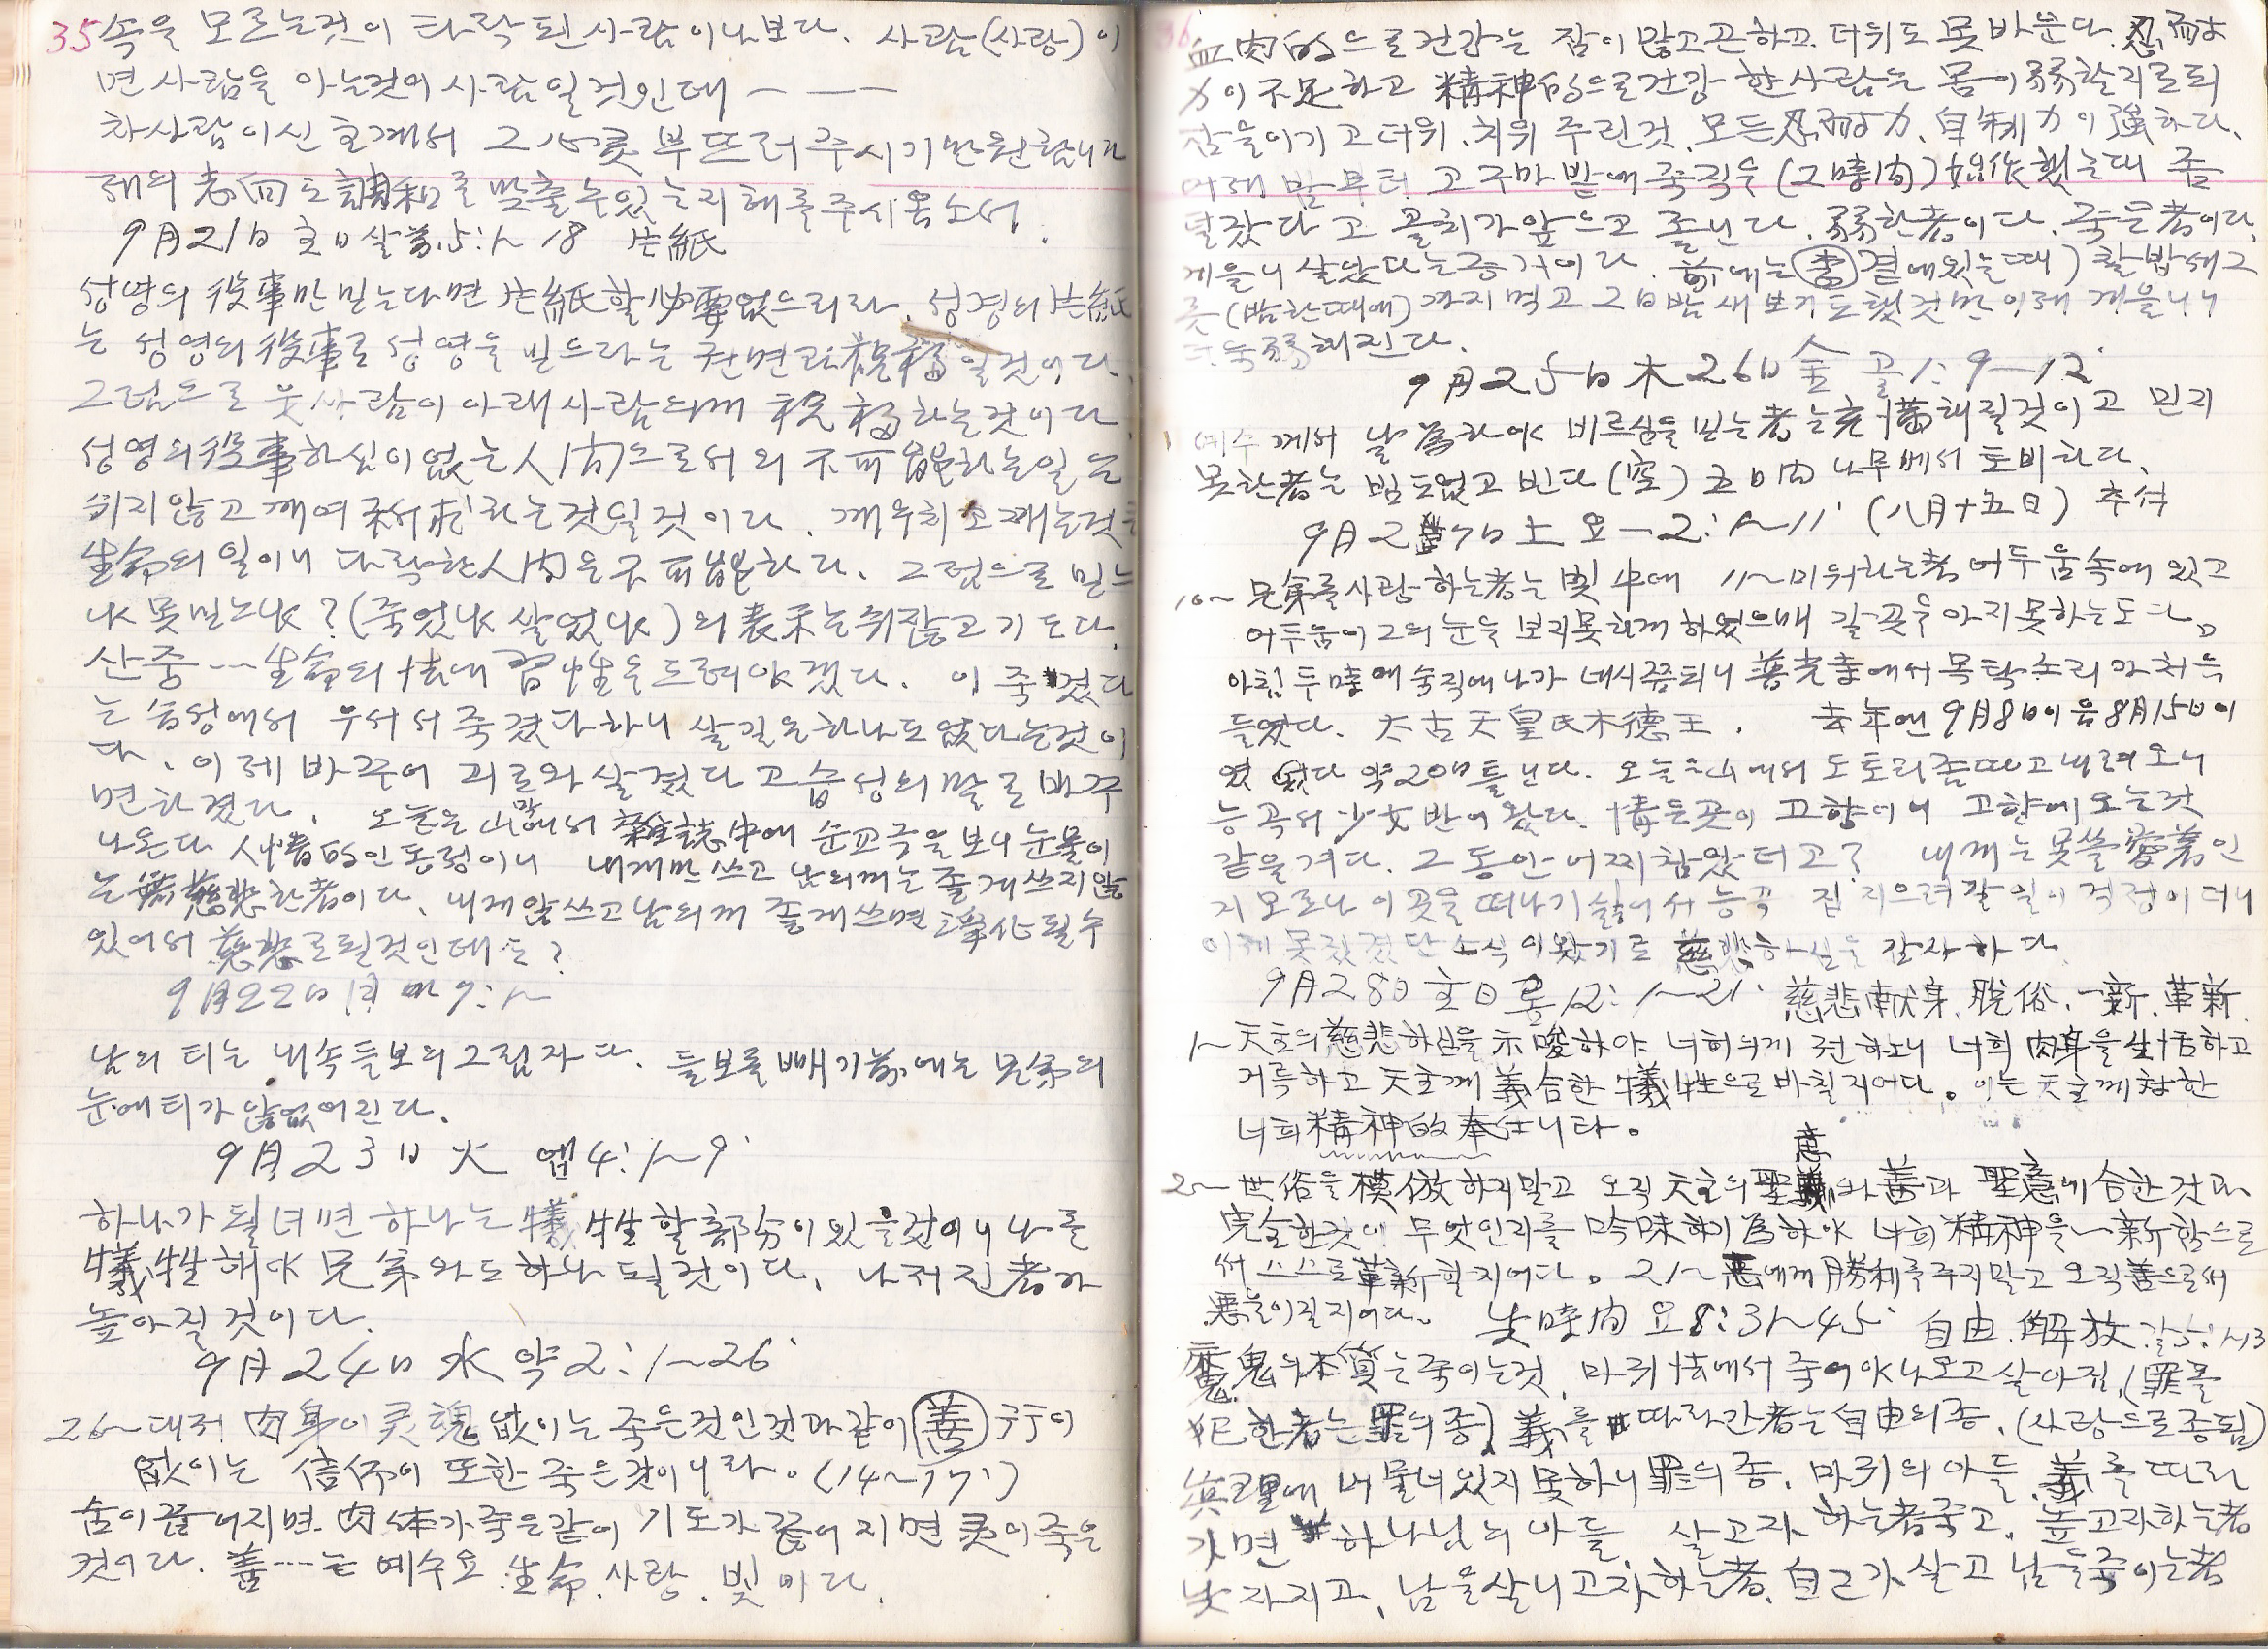 35 속을 모르는것이 타락된사람이나보다. 사람(사랑)이
면 사람을 아는것이 사람일것인데 - - -
차사람이신 主게서 그 心灵 부뜨러 주시기만원합니다
래의 志向도 調和를 맞출수있는지 해를주시옵소서.
9月21日 主日 살前.5:1~18 片紙
성영의 役事만 믿는다면 片紙할 必要없으리라. 성경의 片紙
는 성영의 役事로 성영을 빋으라는 권면과 祝福일것이다.
그럼으로 웃사람이 아래사람의께 祝福하는것이다.
성영의 役事하심이 없는 人间으로서의 不可能하는일은
쉬지않고 깨여 祈求하는것일것이다. 깨우치고 깨는것은
生命의 일이니 타락한人间은 不可能하다. 그럼으로 믿느
냐 못믿느냐?(죽었냐 살었냐)의 表示는 쉬쟎고 기도다.
산중---生命의 法에 習性을 드려야겠다. 이 죽겠다
는 습성에서 우서서 죽겠다하니 살길은하나도없다는것이
다. 이제 바꾸어 괴로와 살겠다고 습성의 말로 바꾸
면 하겠다. 오늘은 山막에서 雜誌中에 순교극을 보니 눈물이
나온다 人情的인동정이니 내게만 쓰고 남의께는 좋게쓰지않
는 無慈悲한者이다. 내게않쓰고남의께 좋게쓰면 淨化될수
있어서 慈悲로될것인데 는?
9月22日 月 마7:1~
남의 티는 내속들보의그림자다. 들보를빼기前에는 兄弟의
눈에티가않없어진다.
9月23日 火 엡4:1~9'
하나가 될녀면 하나는 犧牲할部分이있을것이니 나를
犧牲해야 兄弟와도하나 될것이다. 나저진者가
높아질것이다.
9月24日 水 약2:1~26'
26~ 대저 肉身이灵魂 없이는 죽은것인것과같이 善 行이
없이는 信仰이 또한죽은것이니라. (14~17')
숨이끊어지면 肉体가죽은같이 기도가끊어지면 灵이죽은
것이다. 善---는 예수요 生命.사랑.빛이다.
36 血肉的으로건강는 잠이많고곤하고 더위도못바운다. 忍耐
力이不足하고 精神的으로건강한사람은 몸이弱할지로되
잠을이기고더위.치위 주린것.모든忍耐力.自制力이强하다.
어제밤부터 고구마밭에죽직을(2時间)始作했는데 좀
덜잤다고 골치가앞으고 졸닌다. 弱한者이다. 죽은者이다.
게을니살았다는증거이다. 前에는 곁에있는때) 찰밥세그
릇(밤한때에)까지먹고 그日밤새보기도했것만 이래 게을니니
더욱弱해진다.
9月25日木 26日金 골1:9-12'
예수께서 날為하야 비르심을 믿는者는 充滿해질것이고 믿지
못한者는 빔도없고 빈다(空) 五日内나무베서토비하다.
9月27日土 요一2:1~11' (八月十五日) 추석
10~ 兄弟를사람하는者는 빛中에 11~ 미워하는者 어두움속에있고
어두움이그의눈을 보지못하게하였으매 갈곳을아지못하는도다。
아침두時에숙직에나가 네시쯤되니 善光寺에서목탁소리 아처음
들었다. 太古天皇氏木德王. 去年엔9月8日이음8月15日이
였었다 약20日틀닌다. 오늘은山에서도토리좀따고내려오니
능곡서少女반이왔다. 情든곳이고향이니 고향에오는것
같을거다. 그동안어찌참았더고? 내게는못쓸愛着인
지모르나 이곳을떠나기싫어서능곡 집지으려갈일이걱정이더니
이제못짓겠단소식이왔기로 慈悲하심을 감사하다.
9月28日主日롬12:1~21' 慈悲献身.脫俗.一新.革新
1~ 天主의慈悲하심을示唆하야 너히의게권하노니 너희肉身을生活하고
거륵하고 天主께義合한犧牲으로바칠지어다。이는天主께対한
너희精神的奉仕니라。
2~ 世俗을模倣하지말고 오직天主의聖意와善과聖意에合한것과
完全한것이 무엇인지를吟味하기為하야 너희精神을一新함으로
써스스로革新할지어다。21~ 惡에게勝利를주지말고 오직善으로써
惡을이길지어다。 失時间 요8:31~45' 自由.解放.갈5:1~13
魔鬼의本質는죽이는것. 마귀法에서죽어야나오고살아짐.(罪를
犯한者는罪의종)義를따라간者는自由의종.(사랑으로종됨)
眞理에머물너있지못하니罪의종.마귀의아들.義를따라
가면 하나님의아들. 살고자하는者죽고.높고자하는者
낮자지고.남을살니고자하는者.自己가살고 남을죽이는者